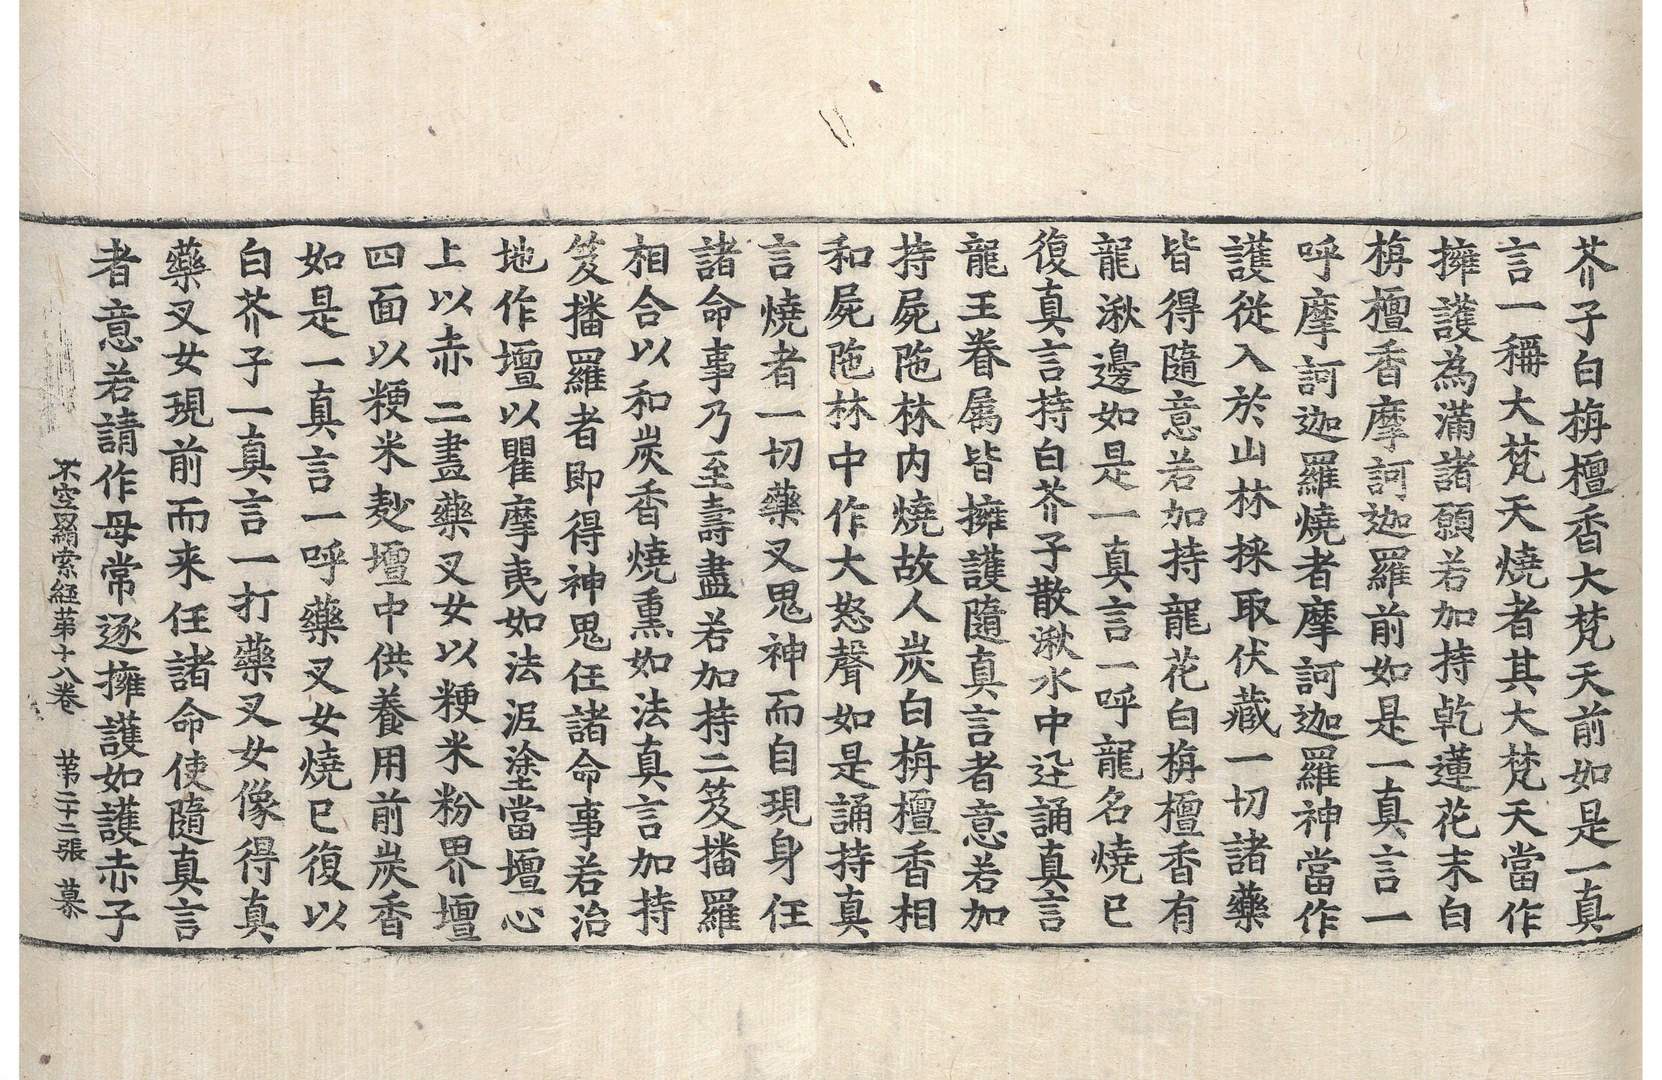 芥子白栴檀香大梵天前如是一真
言一稱大梵天燒者其大梵天當作
擁護為滿諸願若加持乾蓮花末白
栴檀香摩訶迦羅前如是一真言一
呼摩訶迦羅燒者摩訶迦羅神當作
護從入於山林採取伏藏一切諸藥
皆得隨意若加持龍花白栴檀香有
龍湫邊如是一真言一呼龍名燒已
復真言持白芥子散湫水中迊誦真言
龍王眷属皆擁護隨真言者意若加
持屍陁林內燒故人炭白栴檀香相
和屍陁林中作大怒聲如是誦持真
言燒者一切藥叉鬼神而自現身任
諸命事乃至壽盡若加持二笈播羅
相合以和炭香燒熏如法真言加持
笈播羅者即得神鬼任諸命事若治
地作壇以瞿摩夷如法泥塗當壇心
上以赤二畫藥叉女以粳米粉界壇
四面以粳米麨壇中供養用前炭香
如是一真言一呼藥叉女燒已復以
白芥子一真言一打藥叉女像得真
藥叉女現前而来任諸命使隨真言
者意若請作母常逐擁護如護赤子
不空羂索經第十八卷　第二十二張　慕